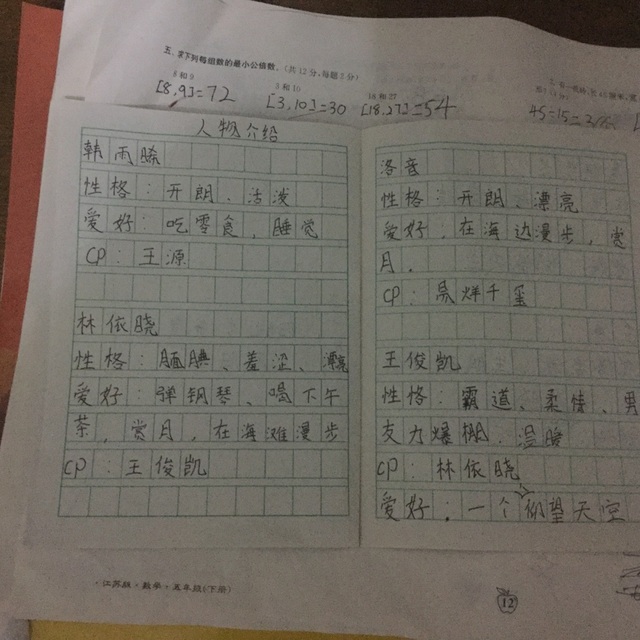 五、求下列每组数的最小公倍数。(共12分，每题2分)
8和9
3和10
18和27
[8,9]=72
[3,10]=30
[18,27]=54
人物介绍
韩雨晞
性格：开朗、活泼
爱好：吃零食，睡觉
CP：王源
林依晓
性格：腼腆、羞涩、漂亮
爱好：弹钢琴、喝下午
茶，赏月，在海滩漫步
CP：王俊凯
洛音
性格：开朗、漂亮
爱好，在海边漫步，赏
月.
CP：易烊千玺
王俊凯
性格：霸道、柔情、男
友力爆棚、温暖
CP：林依晓
爱好：一个仰望天空
·江苏版·数学·五年级(下册)
12